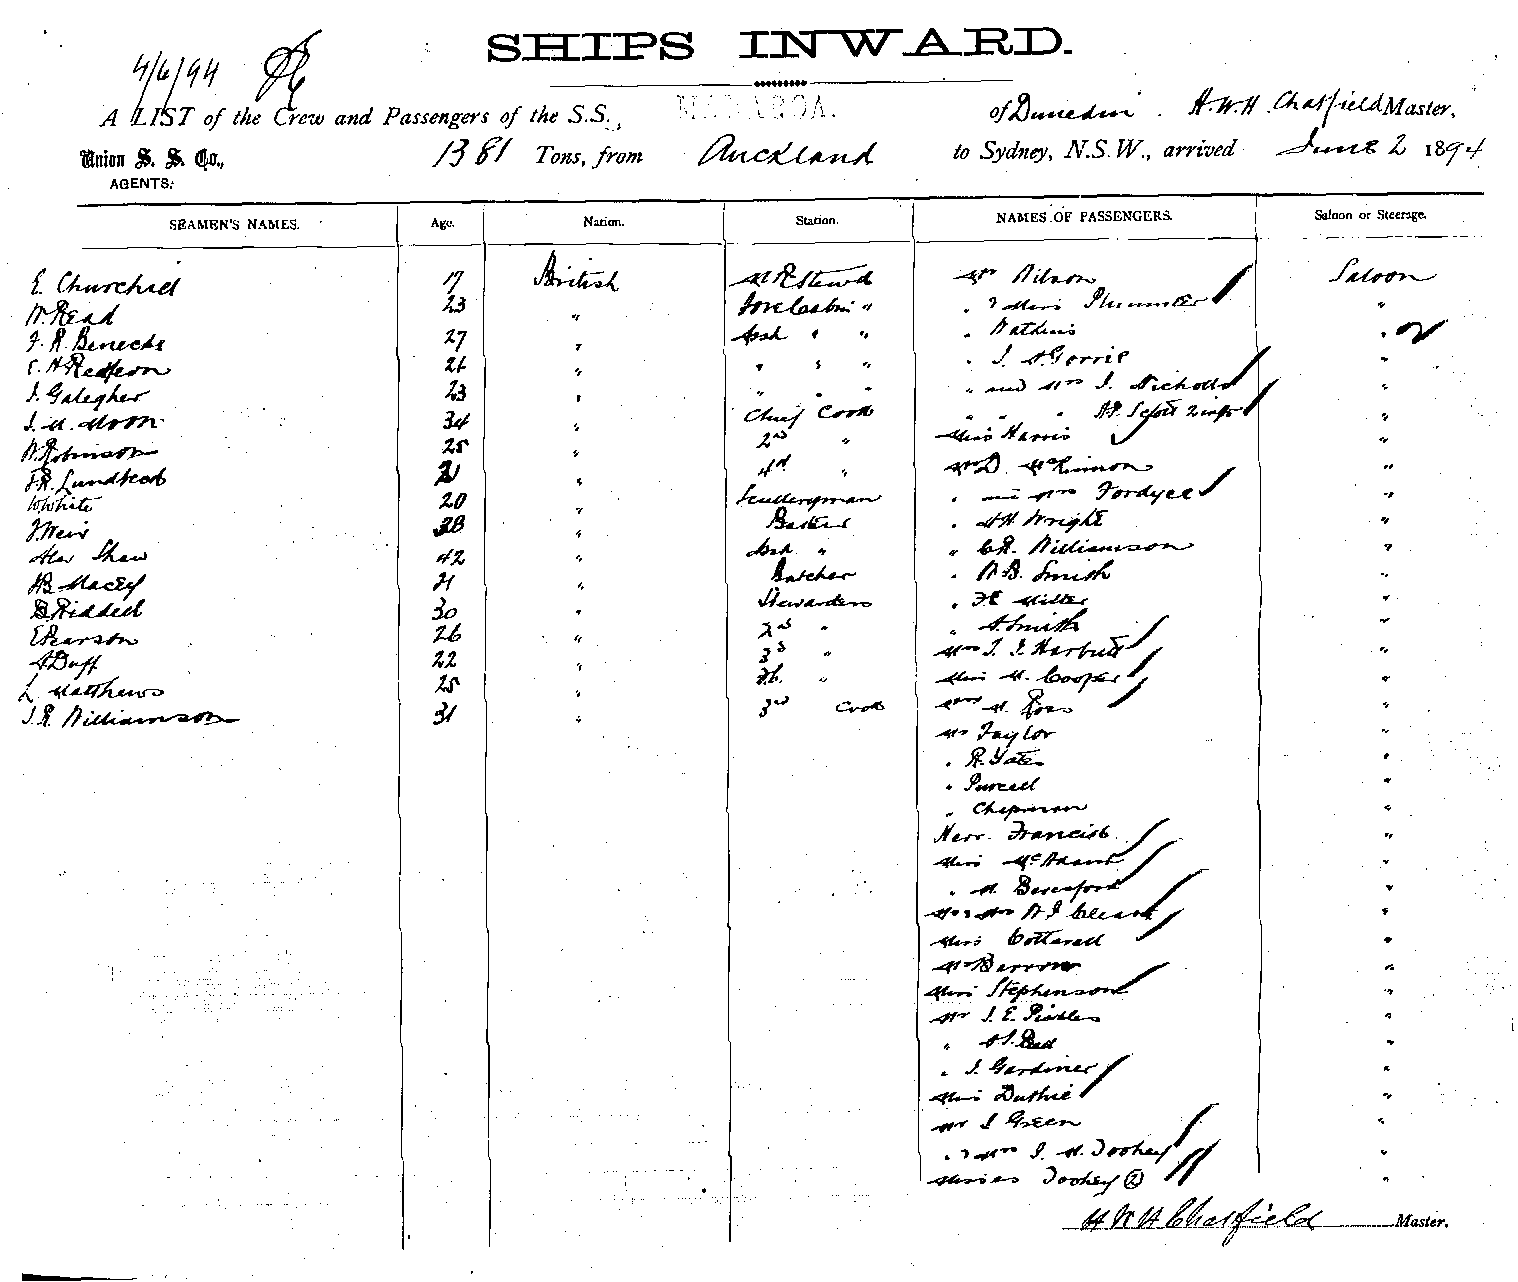 SHIPS INWARD.
4/6/94
A LIST of the Crew and Passengers of the S.S., of Dunedin. H.W.H. Chatfield Master,
Union S. S. Co., 1381 Tons, from Auckland to Sydney, N.S.W., arrived June 2 1894
AGENTS.
SEAMEN'S NAMES. Age. Nation. Station. NAMES OF PASSENGERS. Saloon or Steerage.
E. Churchill 17 British Mr Wilson Saloon
W. Read 23 " Fore Cabin " " & Miss Plummer "
F. R. Benecke 27 " Asst " " " Watkins "
21 " " " " " J. A. Gorrie "
J. Galegher 23 " " " " and Mrs J. Nicholls "
J. M. Moon 34 " Chief Cook " " " "
W. Robinson 25 " 2nd " Miss Harris "
21 " 4th " Mr D. McKinnon "
W White 20 " Sculleryman " and Mrs Fordyce "
J Weir 38 " Baker " H H Wright "
Alex Shaw 42 " Asst " " C R. Williamson "
H B Macey 21 " Butcher " W B. Smith "
Riddell 30 " Stewardess " Miller "
E Pearson 26 " 2nd " " A Smith "
A Duff 22 " 3rd " Mrs J. J. Harbutt "
L Matthews 25 " F.C. " Miss M. Cooper "
J. R. Williamson 31 " 3rd Cook M. Ross "
Mr Taylor "
" R. Yates "
" Purcell "
" Chapman "
Herr. Francis "
Miss McAdam "
" M. Beresford "
Mr & Mrs W J Cleary "
Miss Cotterell "
Mr Barrow "
Miss Stephenson "
Mr J. E. Pickles "
" "
" J. Gardiner "
Miss Duthie "
Mr J Green "
" & Mrs J. M. Toohey "
Misses Toohey (2) "
H W H Chatfield Master.